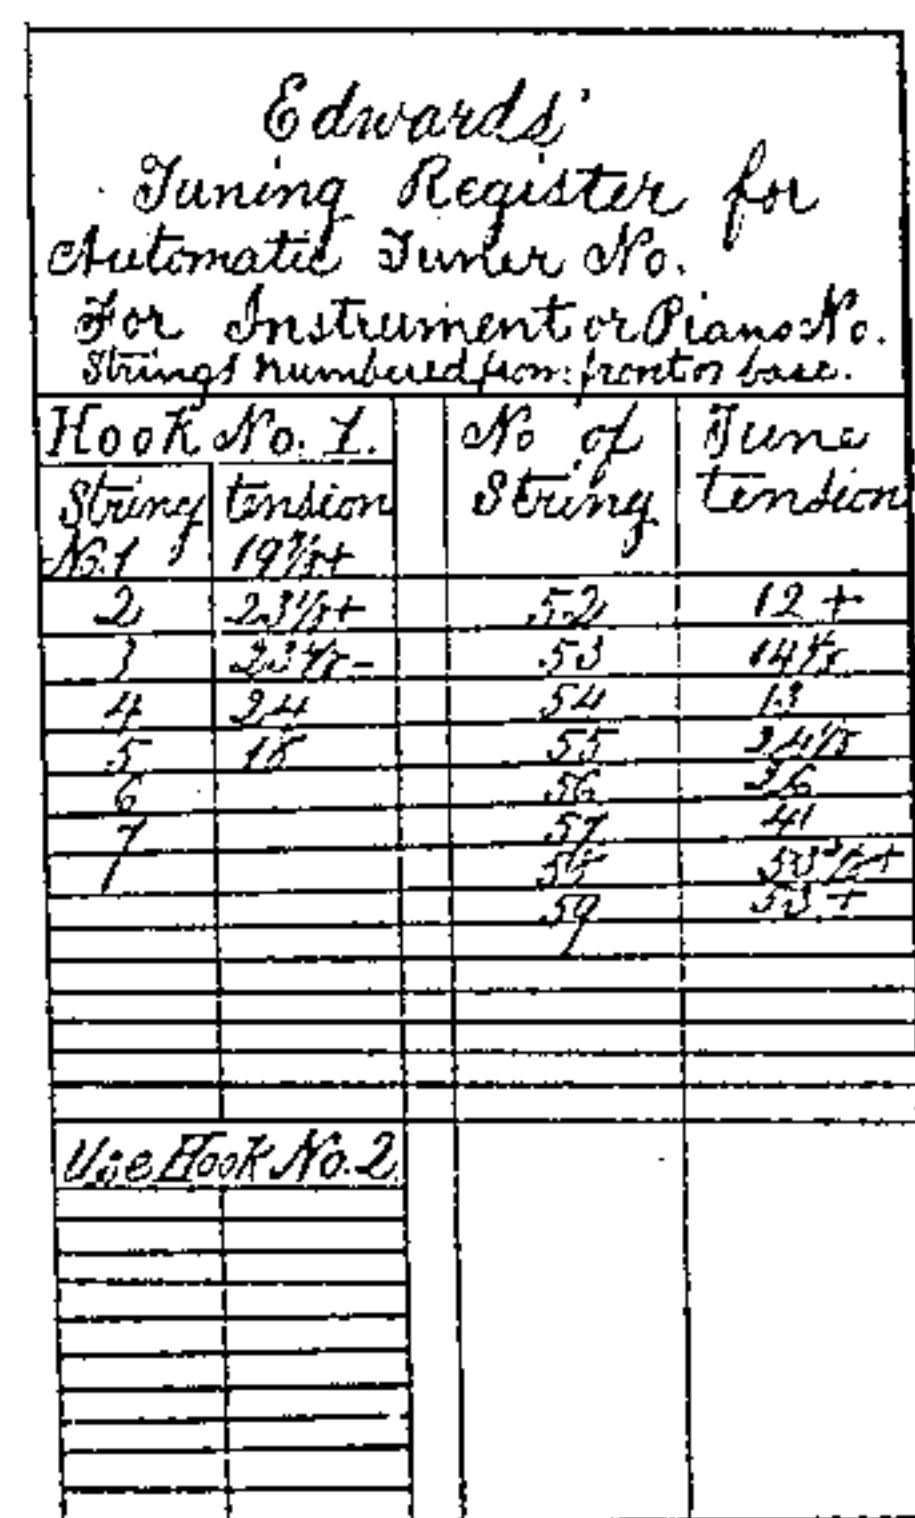 Edwards'
Tuning Register for
Automatic Tuner No.
For Instrument or Piano No.
Strings numbered from front or base.
Hook No. 1. No of String Tune tension
String tension
No. 1
2 23 1/8+ 52 12 +
3 53
4 24 54 13
5 18 55 24 1/8
6 56 26
7 57 41
58
59 53 +
Use Hook No. 2